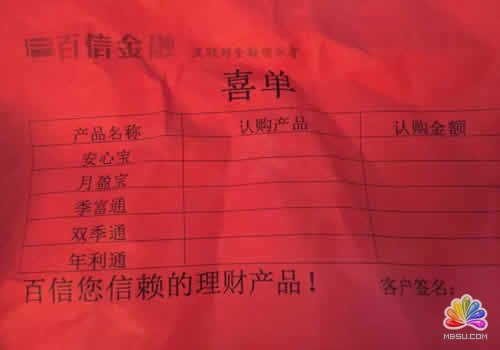 百信金融
喜单
产品名称 认购产品 认购金额
安心宝
月盈宝
季富通
双季通
年利通
百信您信赖的理财产品！ 客户签名：
MBSU.COM